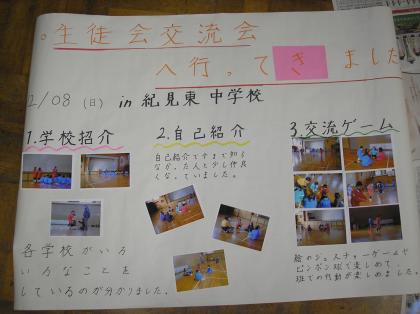 生徒会交流会
へ行ってきました
2/08 (日) in 紀見東中学校
1.学校招介
各学校がいろ
いろなことを
しているのが分かりました。
2.自己紹介
自己紹介で今まで知ら
なかった人と少し仲良
くなっていました。
3.交流ゲーム
絵のジェスチャーゲームや
ピンポン球で楽しめて、
班での行動が楽しめました。